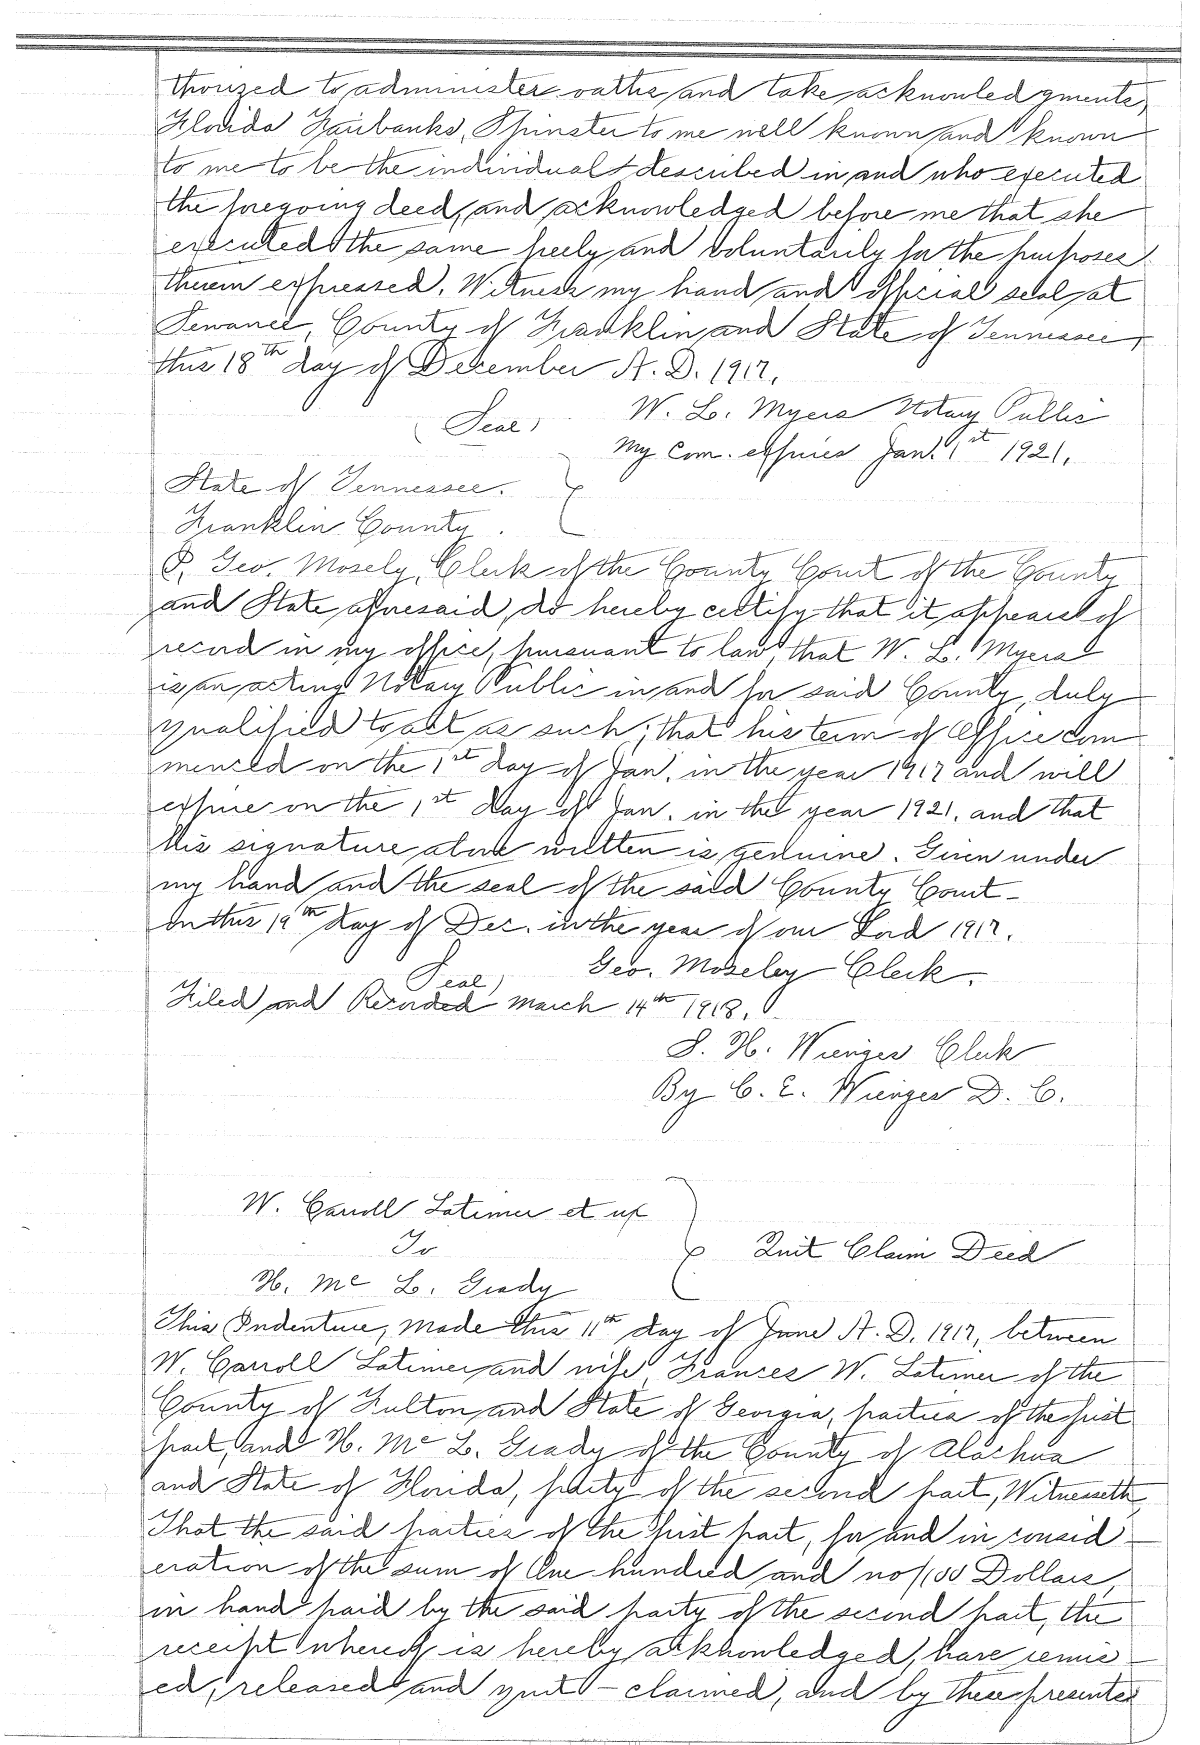 thorized to administer oaths and take acknowledgments,
Florida Fairbanks, Spinster to me well known and known
to me to be the individual described in and who executed
the foregoing deed, and acknowledged before me that she
executed the same freely and voluntarily for the purposes
therein expressed. Witness my hand and official seal at
Sewanee, County of Franklin and State of Tennessee,
this 18th day of December A. D. 1917.
W. L. Myers Notary Public
(Seal)
My Com. expires Jan. 1st 1921.
State of Tennessee.
Franklin County.
I, Geo. Mosely, Clerk of the County Court of the County
and State aforesaid, do hereby certify that it appears of
record in my office, pursuant to law, that W. L. Myers
is an acting Notary Public in and for said County, duly
qualified to act as such; that his term of Office com
menced on the 1st day of Jan. in the year 1917 and will
expire on the 1st day of Jan. in the year 1921. and that
his signature above written is genuine. Given under
my hand and the seal of the said County Court
on this 19th day of Dec. in the year of our Lord 1917.
Geo. Moseley Clerk.
Seal)
Filed and Recorded March 14th 1918.
S. H. Wienges Clerk
By C. E. Wienges D. C.
W. Carroll Latimer et ux
To
Quit Claim Deed
H. Mc L. Grady
This Indenture, Made this 11th day of June A. D. 1917, between
W. Carroll Latimer and wife, Frances W. Latimer of the
County of Fulton and State of Georgia, parties of the first
part, and H. Mc L. Grady of the County of Alachua
and State of Florida, party of the second part, Witnesseth,
That the said parties of the first part, for and in consid
eration of the sum of One hundred and no/100 Dollars,
in hand paid by the said party of the second part, the
receipt whereof is hereby acknowledged, have remis
ed, released and quit-claimed, and by these presents